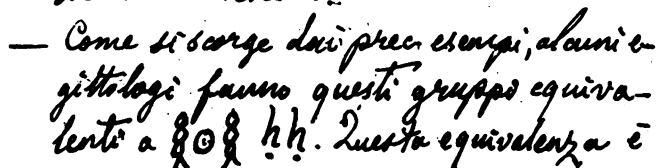 — Come si scorge dai prec. esempi, alcuni e-
gittologi fanno questi gruppi equiva-
lenti a 𓎛𓇳𓎛 ḥḥ. Questa equivalenza è